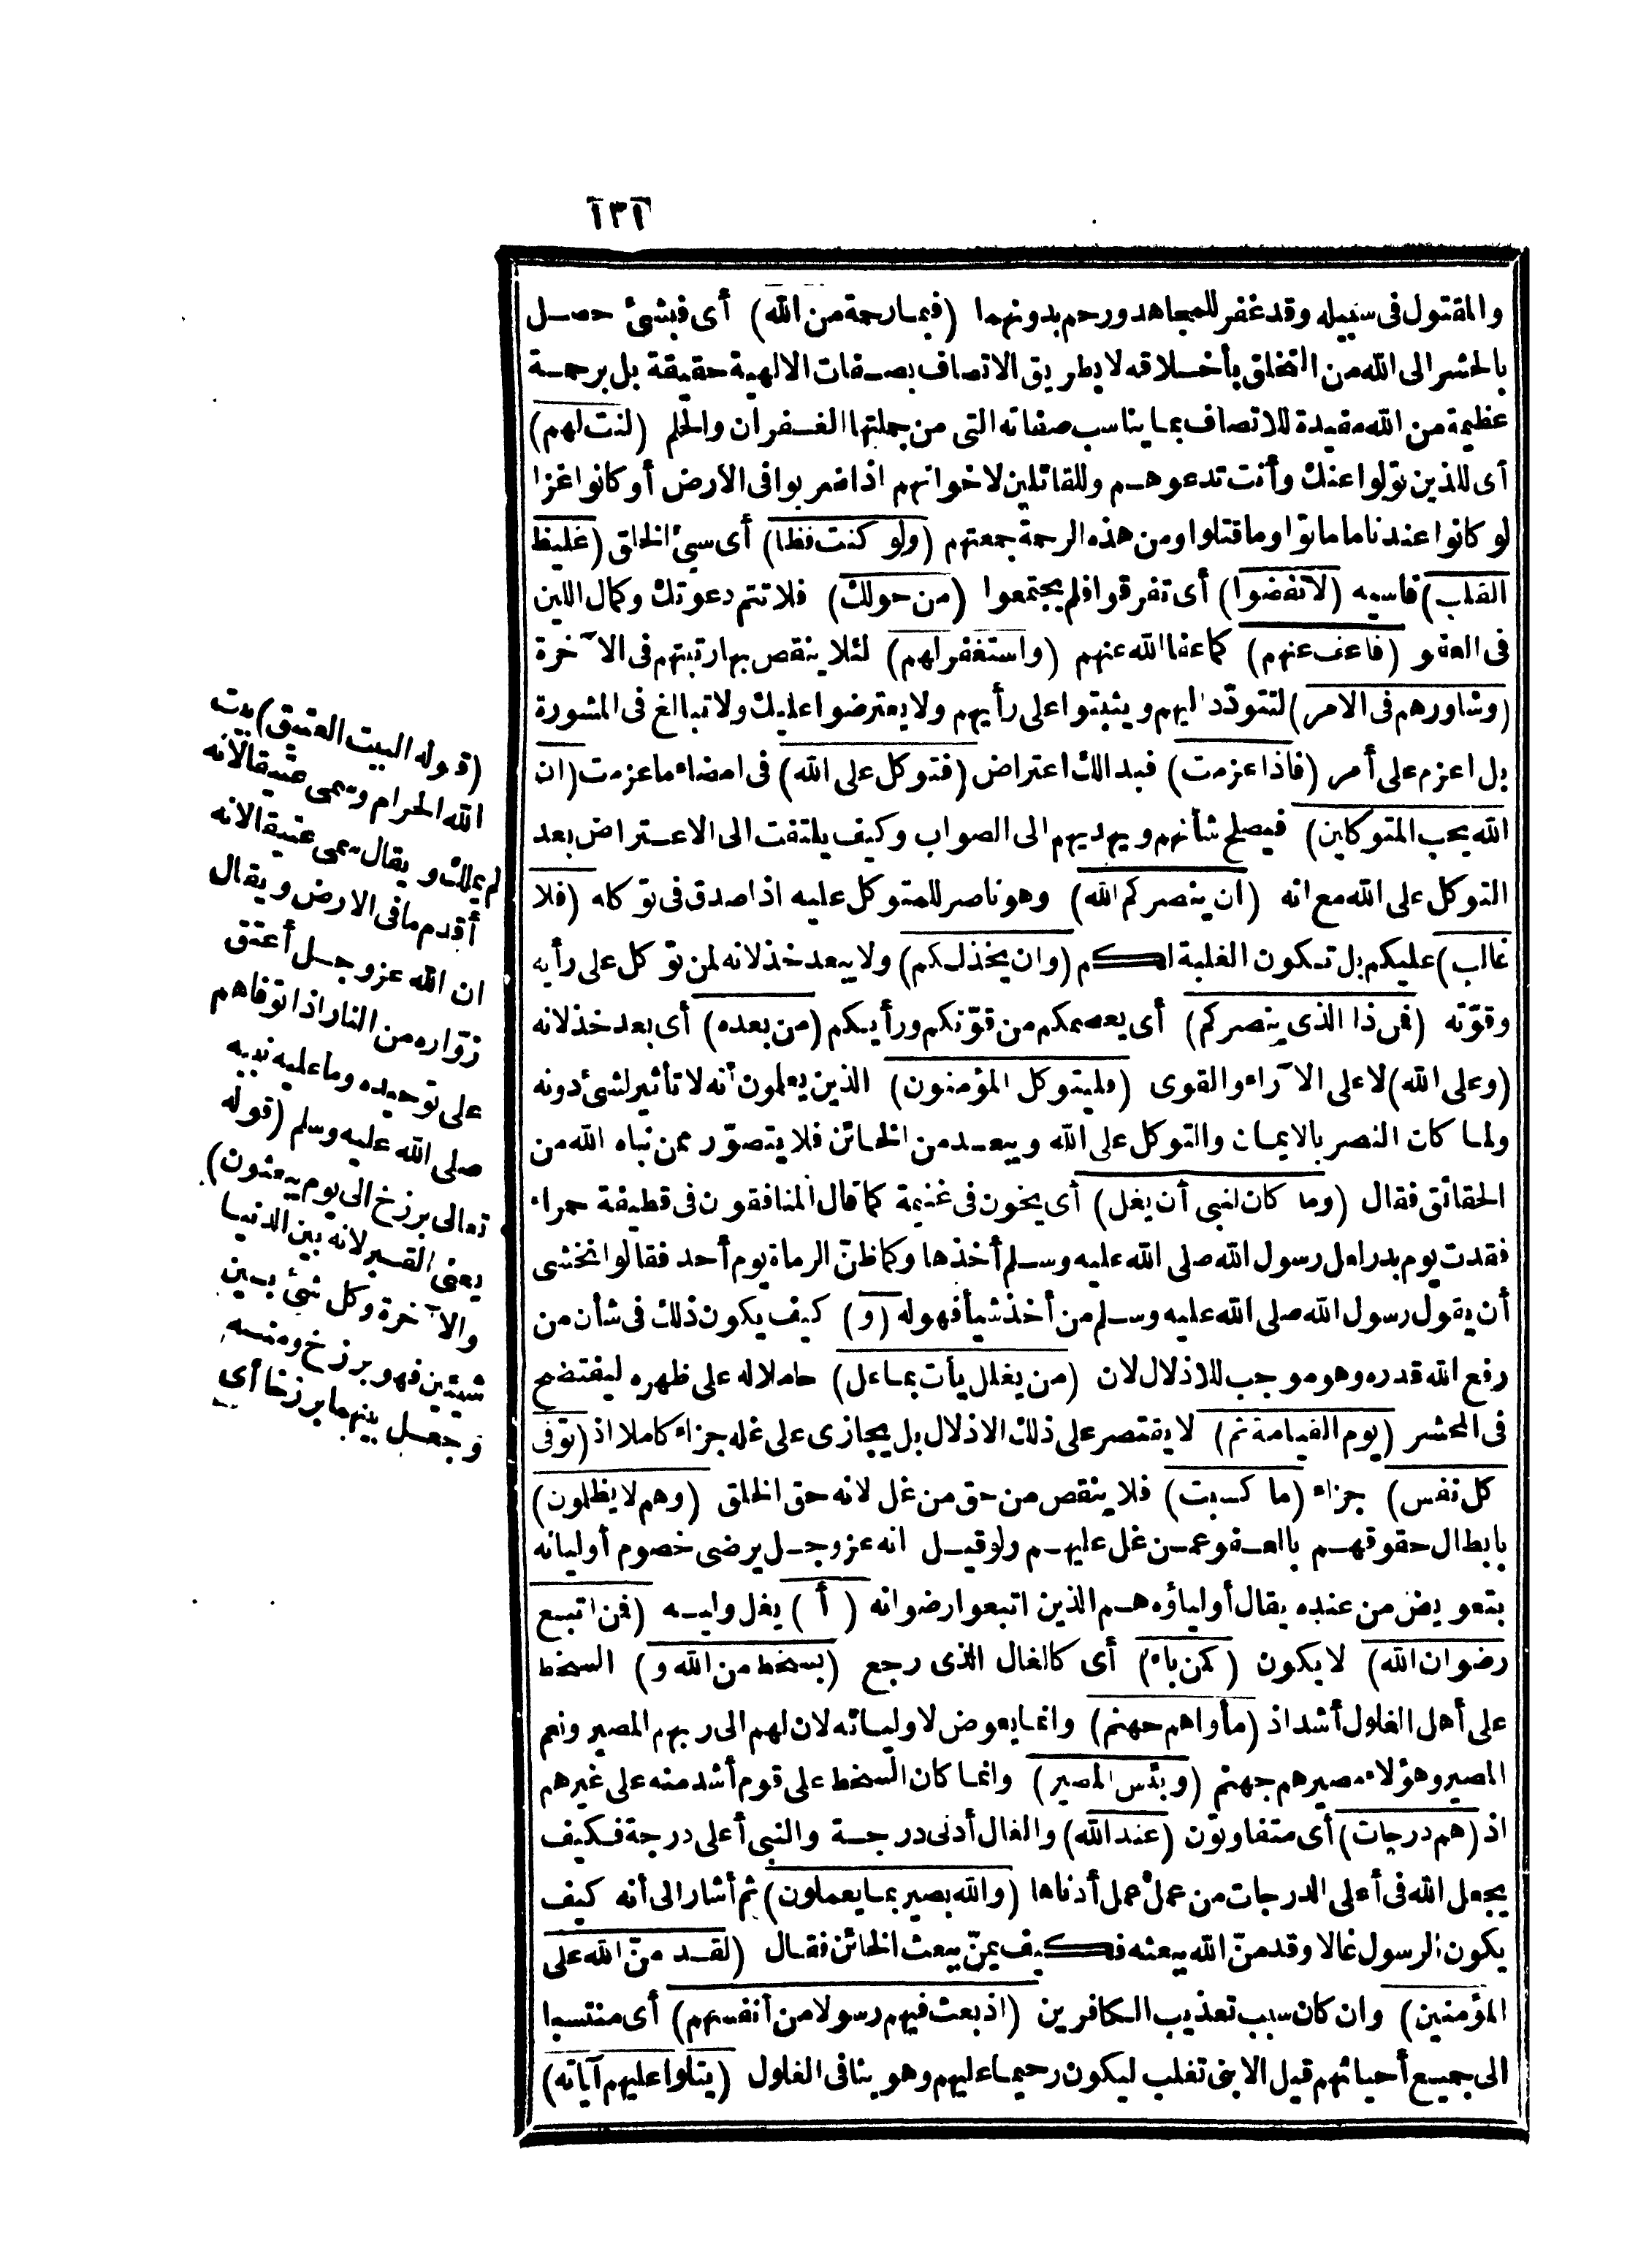 ١٣١
والمقتول فى سبيله وقد غفر للمجاهد ورحم بدونهما (فبما رحمة من الله) أى فبشئ حصل
بالحشر الى الله من التخلق بأخلاقه لا بطريق الاتصاف بصفات الالهية حقيقة بل برحمة
عظيمة من الله مفيدة للاتصاف بما يناسب صفاته التى من جملتها الغفران والحلم (لنت لهم)
أى للذين تولوا عنك وأنت تدعوهم وللقائلين لاخوانهم اذا ضربوا فى الارض أو كانوا غزا
لو كانوا عندنا ما ماتوا وما قتلوا ومن هذه الرحمة جمعتهم (ولو كنت فظا) أى سيئ الخلق (غليظ
القلب) قاسيه (لانفضوا) أى تفرقوا فلم يجتمعوا (من حولك) فلا تتم دعوتك وكمال اللين
فى العفو (فاعف عنهم) كما عفا الله عنهم (واستغفر لهم) لئلا ينقص بها رتبتهم فى الآخرة
(وشاورهم فى الامر) لتتودّد اليهم ويثبتوا على رأيهم ولا يعترضوا عليك ولا تبالغ فى المشورة
بل اعزم على أمر (فاذا عزمت) فبدالك اعتراض (فتوكل على الله) فى امضاء ما عزمت (ان
الله يحب المتوكلين) فيصلح شأنهم ويهديهم الى الصواب وكيف يلتفت الى الاعتراض بعد
التوكل على الله مع انه (ان ينصركم الله) وهو ناصر للمتوكل عليه اذا صدق فى توكله (فلا
غالب) عليكم بل تكون الغلبة لكم (وان يخذلكم) ولا يبعد خذلانه لمن توكل على رأيه
وقوّته (فمن ذا الذى ينصركم) أى يعصمكم من قوّتكم ورأيكم (من بعده) أى بعد خذلانه
(وعلى الله) لا على الآراء والقوى (فليتوكل المؤمنون) الذين يعلمون أنه لا تأثير لشئ دونه
ولما كان النصر بالايمان والتوكل على الله ويبعد من الخائن فلا يتصوّر ممن نباه الله من
الحقائق فقال (وما كان لنبى أن يغل) أى يخون فى غنيمة كما قال المنافقون فى قطيفة حمراء
فقدت يوم بدر لعل رسول الله صلى الله عليه وسلم أخذها وكما ظنّ الرماة يوم أحد فقالوا نخشى
أن يقول رسول الله صلى الله عليه وسلم من أخذ شيأ فهو له (و) كيف يكون ذلك فى شأن من
رفع الله قدره وهو موجب للاذلال لان (من يغلل يأت بما غل) حاملا له على ظهره ليفتضح
فى المحشر (يوم القيامة ثم) لا يقتصر على ذلك الاذلال بل يجازى على غله جزاء كاملا اذ (توفى
كل نفس) جزاء (ما كسبت) فلا ينقص من حق من غل لانه حق الخلق (وهم لا يظلمون)
بابطال حقوقهم بالعفو عمن غل عليهم ولو قيل انه عز وجل يرضى خصوم أوليائه
بتعويض من عنده يقال أولياؤه هم الذين اتبعوا رضوانه (أ) يغل وليه (فمن اتبع
رضوان الله) لا يكون (كمن باء) أى كالغال الذى رجع (بسخط من الله و) السخط
على أهل الغلول أشد اذ (مأواهم جهنم) وانما يعوض لاوليائه لان لهم الى ربهم المصير ونعم
المصير وهؤلاء مصيرهم جهنم (وبئس المصير) وانما كان السخط على قوم أشد منه على غيرهم
اذ (هم درجات) أى متفاوتون (عند الله) والغال أدنى درجة والنبى أعلى درجة فكيف
يجعل الله فى أعلى الدرجات من عمل عمل أدناها (والله بصير بما يعملون) ثم أشار الى أنه كيف
يكون الرسول غالا وقد منّ الله ببعثه فكيف يمنّ ببعث الخائن فقال (لقد منّ الله على
المؤمنين) وان كان سبب تعذيب الكافرين (اذ بعث فيهم رسولا من أنفسهم) أى منتسبا
الى جميع أحيائهم قيل الا بنى تغلب ليكون رحيما عليهم وهو ينافى الغلول (يتلوا عليهم آياته)
(قوله البيت العتيق) بيت
الله الحرام وسمى عتيقا لانه
لم يملك ويقال سمى عتيقا لانه
أقدم ما فى الارض ويقال
ان الله عز وجل أعتق
زوّاره من النار اذا توفاهم
على توحيده وما عليه نبيه
صلى الله عليه وسلم (قوله
تعالى برزخ الى يوم يبعثون)
يعنى القبر لانه بين الدنيا
والآخرة وكل شئ بين
شيئين فهو برزخ ومنه
وجعل بينهما برزخا أى